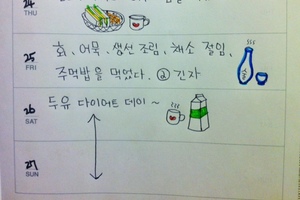 24
THU
25
FRI
회, 어묵, 생선 조림, 채소 절임,
주먹밥을 먹었다. @ 긴자
26
SAT
두유 다이어트 데이 ~
27
SUN